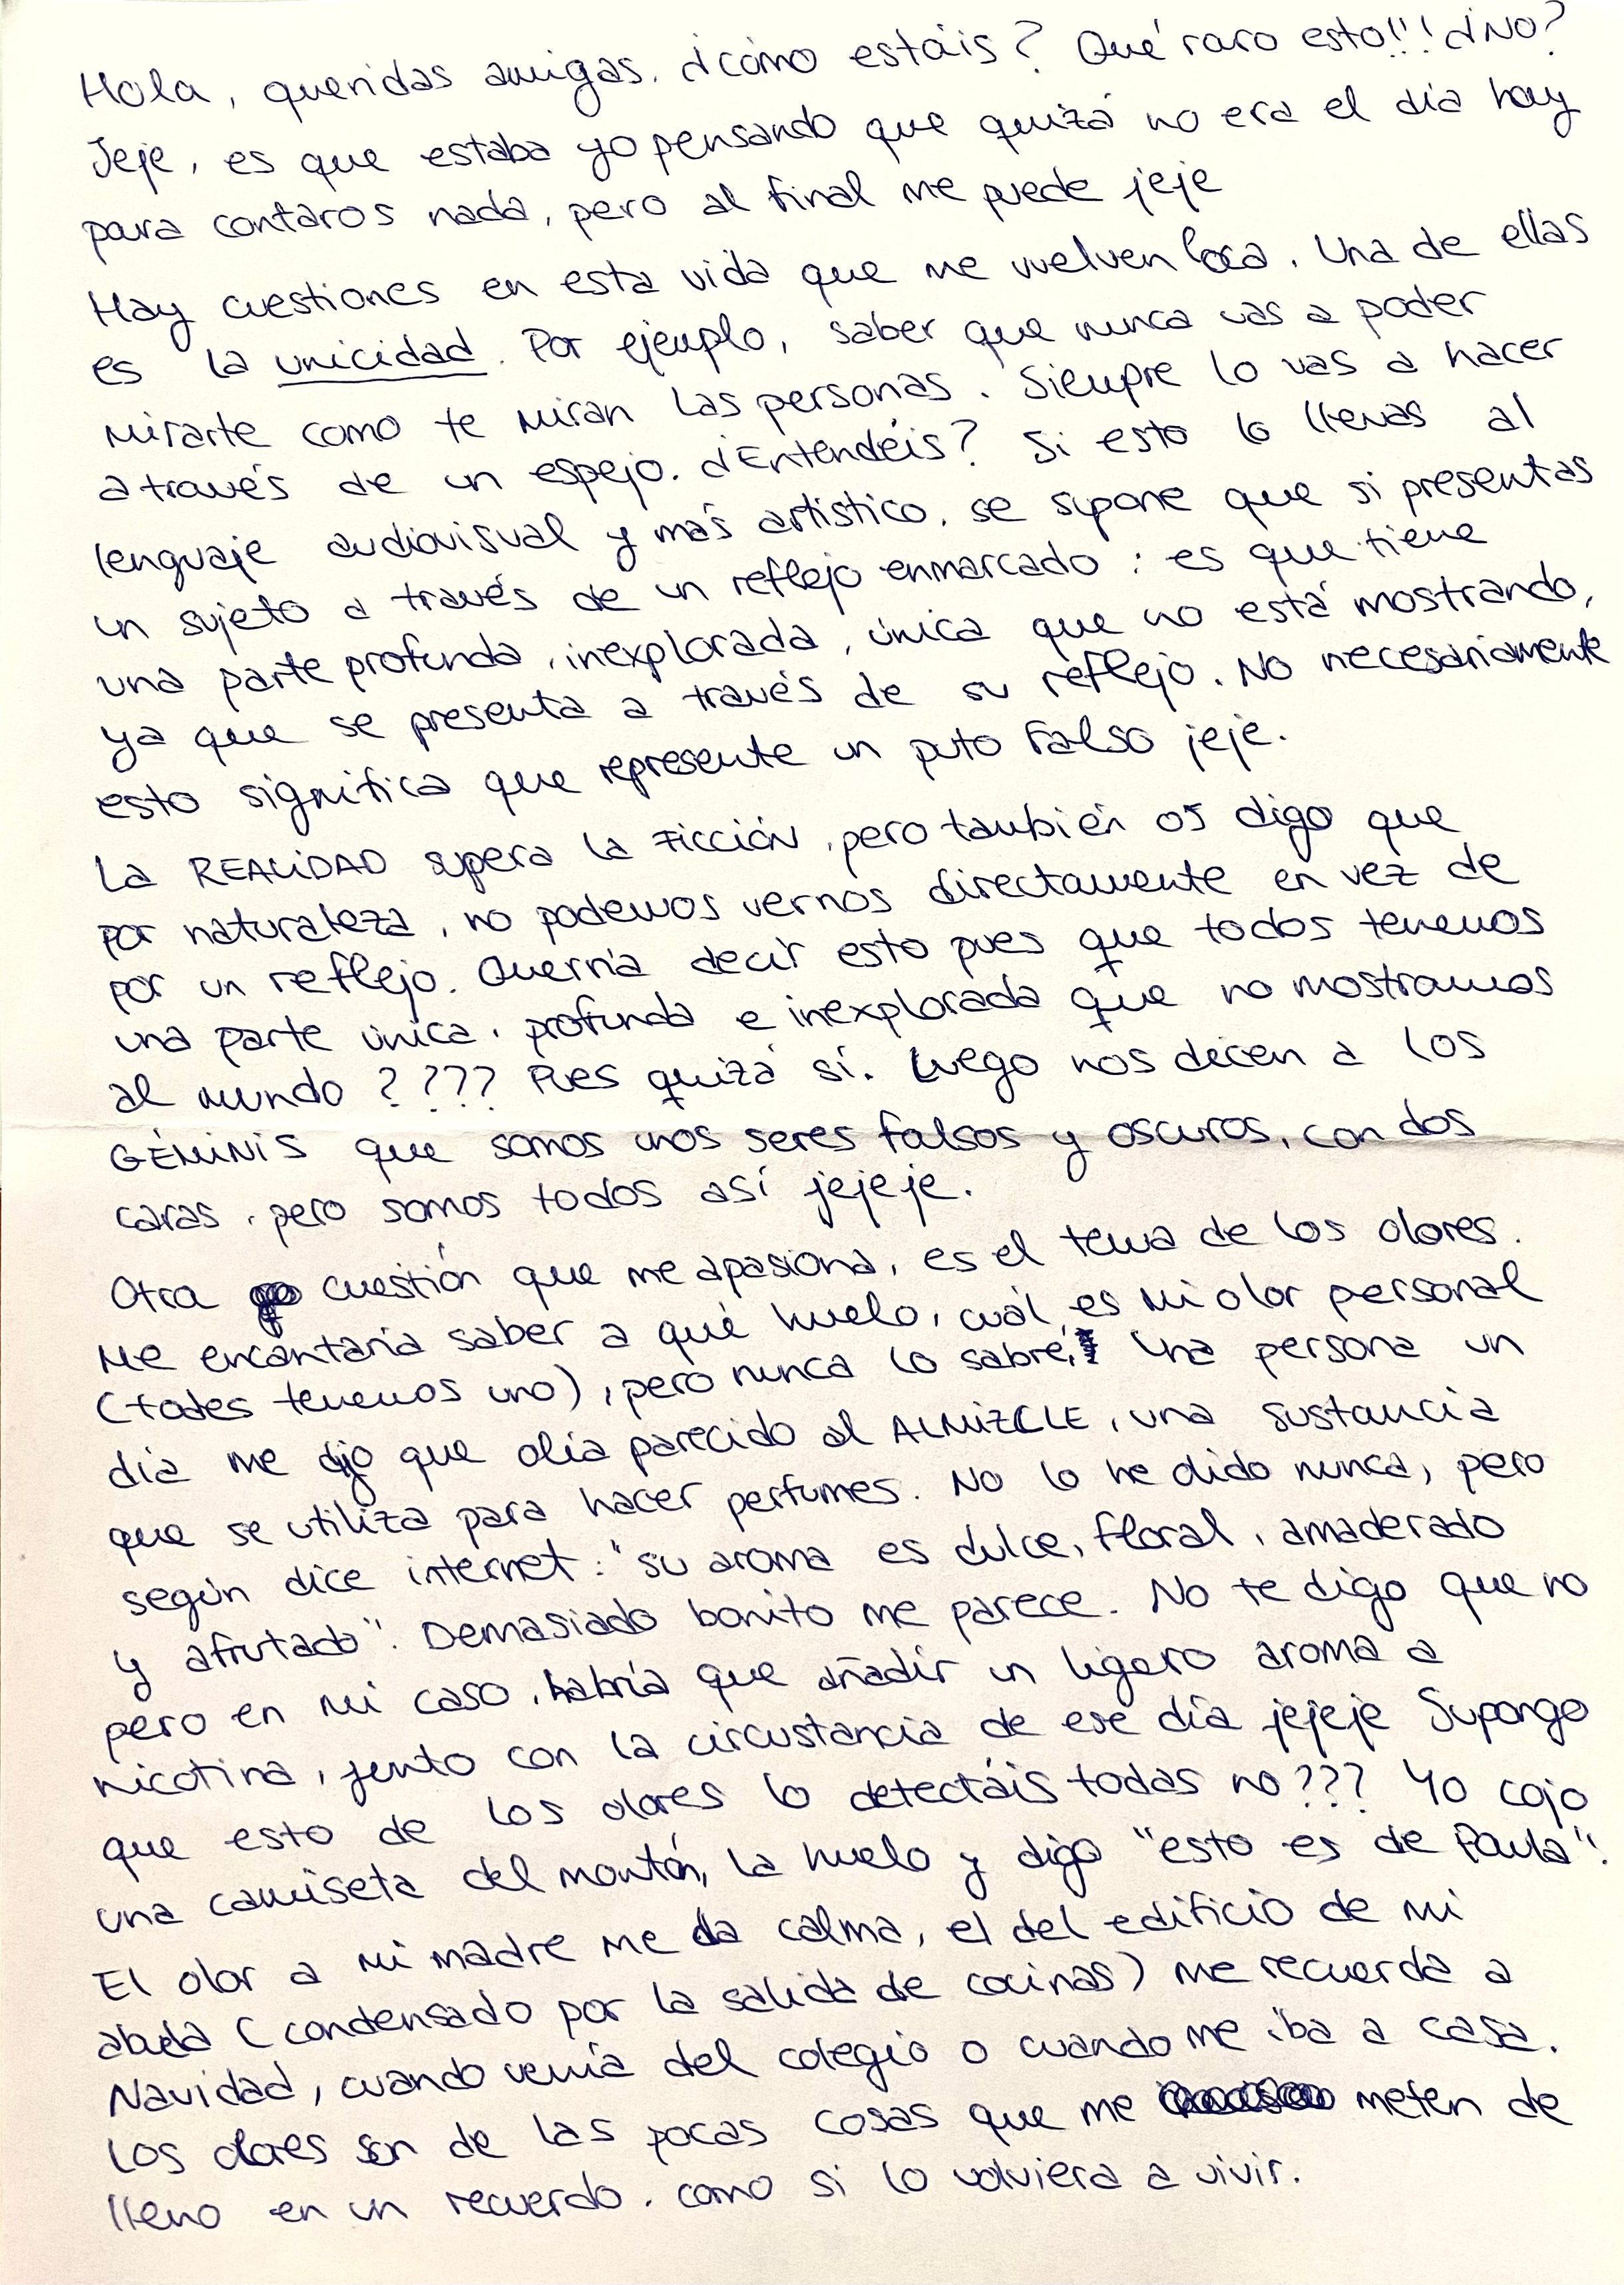 Hola, queridas amigas. ¿cómo estáis? Qué raro esto!!! ¿No?
Jeje, es que estaba yo pensando que quizá no era el día hoy
para contaros nada, pero al final me puede jeje
Hay cuestiones en esta vida que me vuelven loca. Una de ellas
es la unicidad. Por ejemplo, saber que nunca vas a poder
mirarte como te miran las personas. Siempre lo vas a hacer
a través de un espejo. ¿Entendéis? Si esto lo llevas al
lenguaje audiovisual y más artístico, se supone que si presentas
un sujeto a través de un reflejo enmarcado: es que tiene
una parte profunda, inexplorada, única que no está mostrando,
ya que se presenta a través de su reflejo. No necesariamente
esto significa que represente un puto falso jeje.
La REALIDAD supera la FICCIÓN, pero también os digo que
por naturaleza, no podemos vernos directamente en vez de
por un reflejo. Querría decir esto pues que todos tenemos
una parte única, profunda e inexplorada que no mostramos
al mundo ???? Pues quizá sí. Luego nos dicen a los
GÉMINIS que somos unos seres falsos y oscuros, con dos
caras, pero somos todos así jejeje.
Otra cuestión que me apasiona, es el tema de los olores.
Me encantaría saber a qué huelo, cuál es mi olor personal
(todes tenemos uno), pero nunca lo sabré. Una persona un
día me dijo que olía parecido al ALMIZCLE, una sustancia
que se utiliza para hacer perfumes. No lo he olido nunca, pero
según dice internet: "su aroma es dulce, floral, amaderado
y afrutado". Demasiado bonito me parece. No te digo que no
pero en mi caso, habría que añadir un ligero aroma a
nicotina, junto con la circustancia de ese día jejeje Supongo
que esto de los olores lo detectáis todas no??? Yo cojo
una camiseta del montón, la huelo y digo "esto es de Paula".
El olor a mi madre me da calma, el del edificio de mi
abuela (condensado por la salida de cocinas) me recuerda a
Navidad, cuando venía del colegio o cuando me iba a casa.
Los olores son de las pocas cosas que me meten de
lleno en un recuerdo, como si lo volviera a vivir.